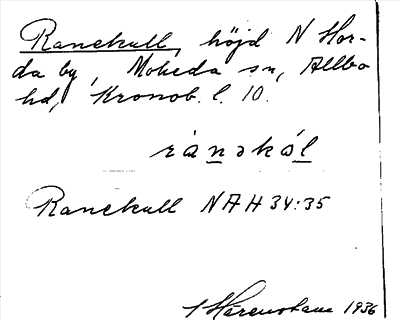 Ranekull, höjd N Hor-
da by, Moheda sn, Allbo
hd, Kronob. l. 10.
rànəkál
Ranekull NAH 34:35
1936